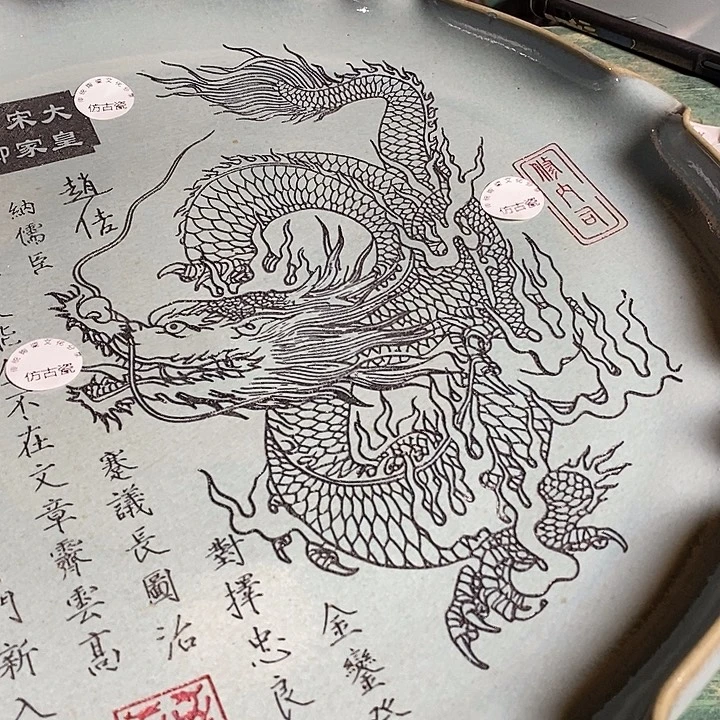 大宋
皇家
仿古瓷
仿古瓷
仿古瓷
内司
趙佶
金鑾
對擇忠良
議長圖治
納儒臣
不在文章霽雲高
門新入